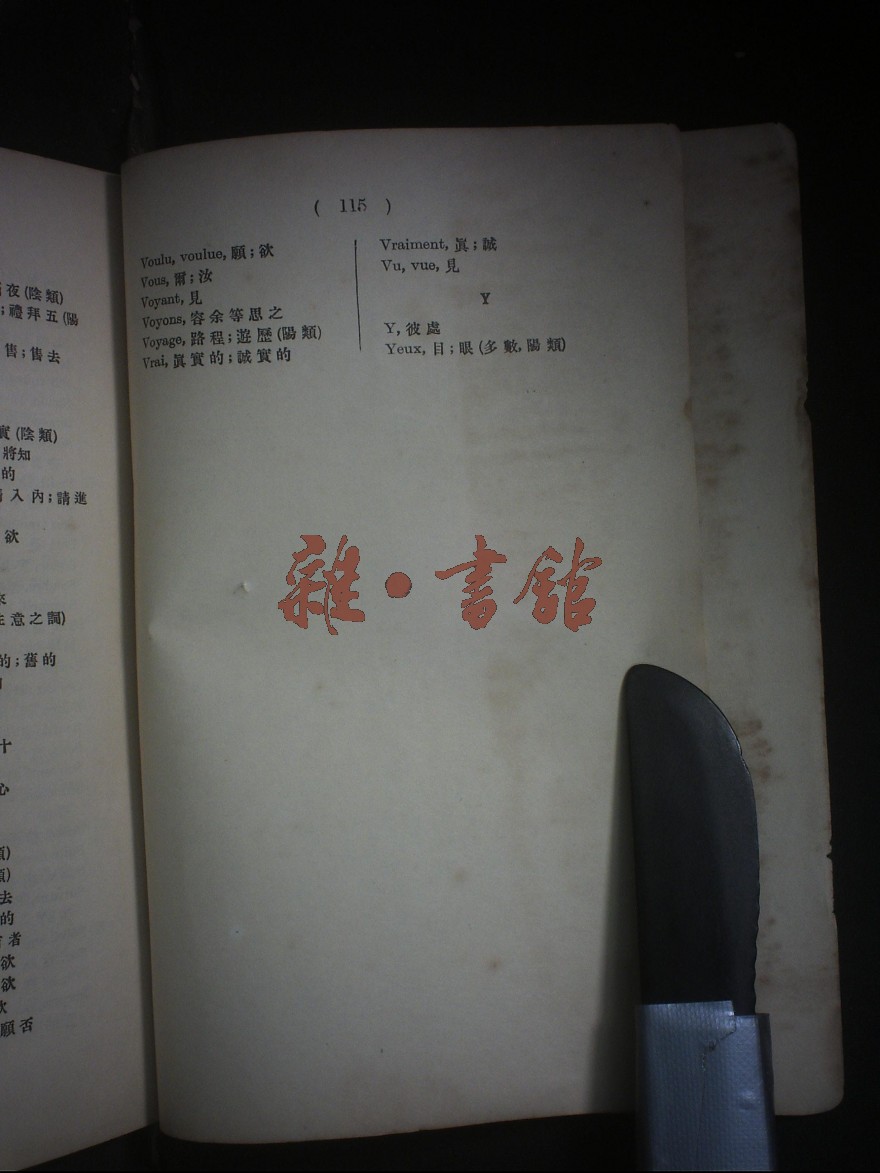 夜(陰類)
;禮拜五(陽
售;售去
實(陰類)
將知
的
入內;請進
欲
意之詞)
的;舊的
十
心
去
的
者
欲
欲
欲
願否
( 115 )
Voulu, voulue, 願;欲
Vous, 爾;汝
Voyant, 見
Voyons, 容余等思之
Voyage, 路程;遊歷(陽類)
Vrai, 眞實的;誠實的
Vraiment, 眞;誠
Vu, vue, 見
Y
Y, 彼處
Yeux, 目;眼(多數,陽類)
雜·書館